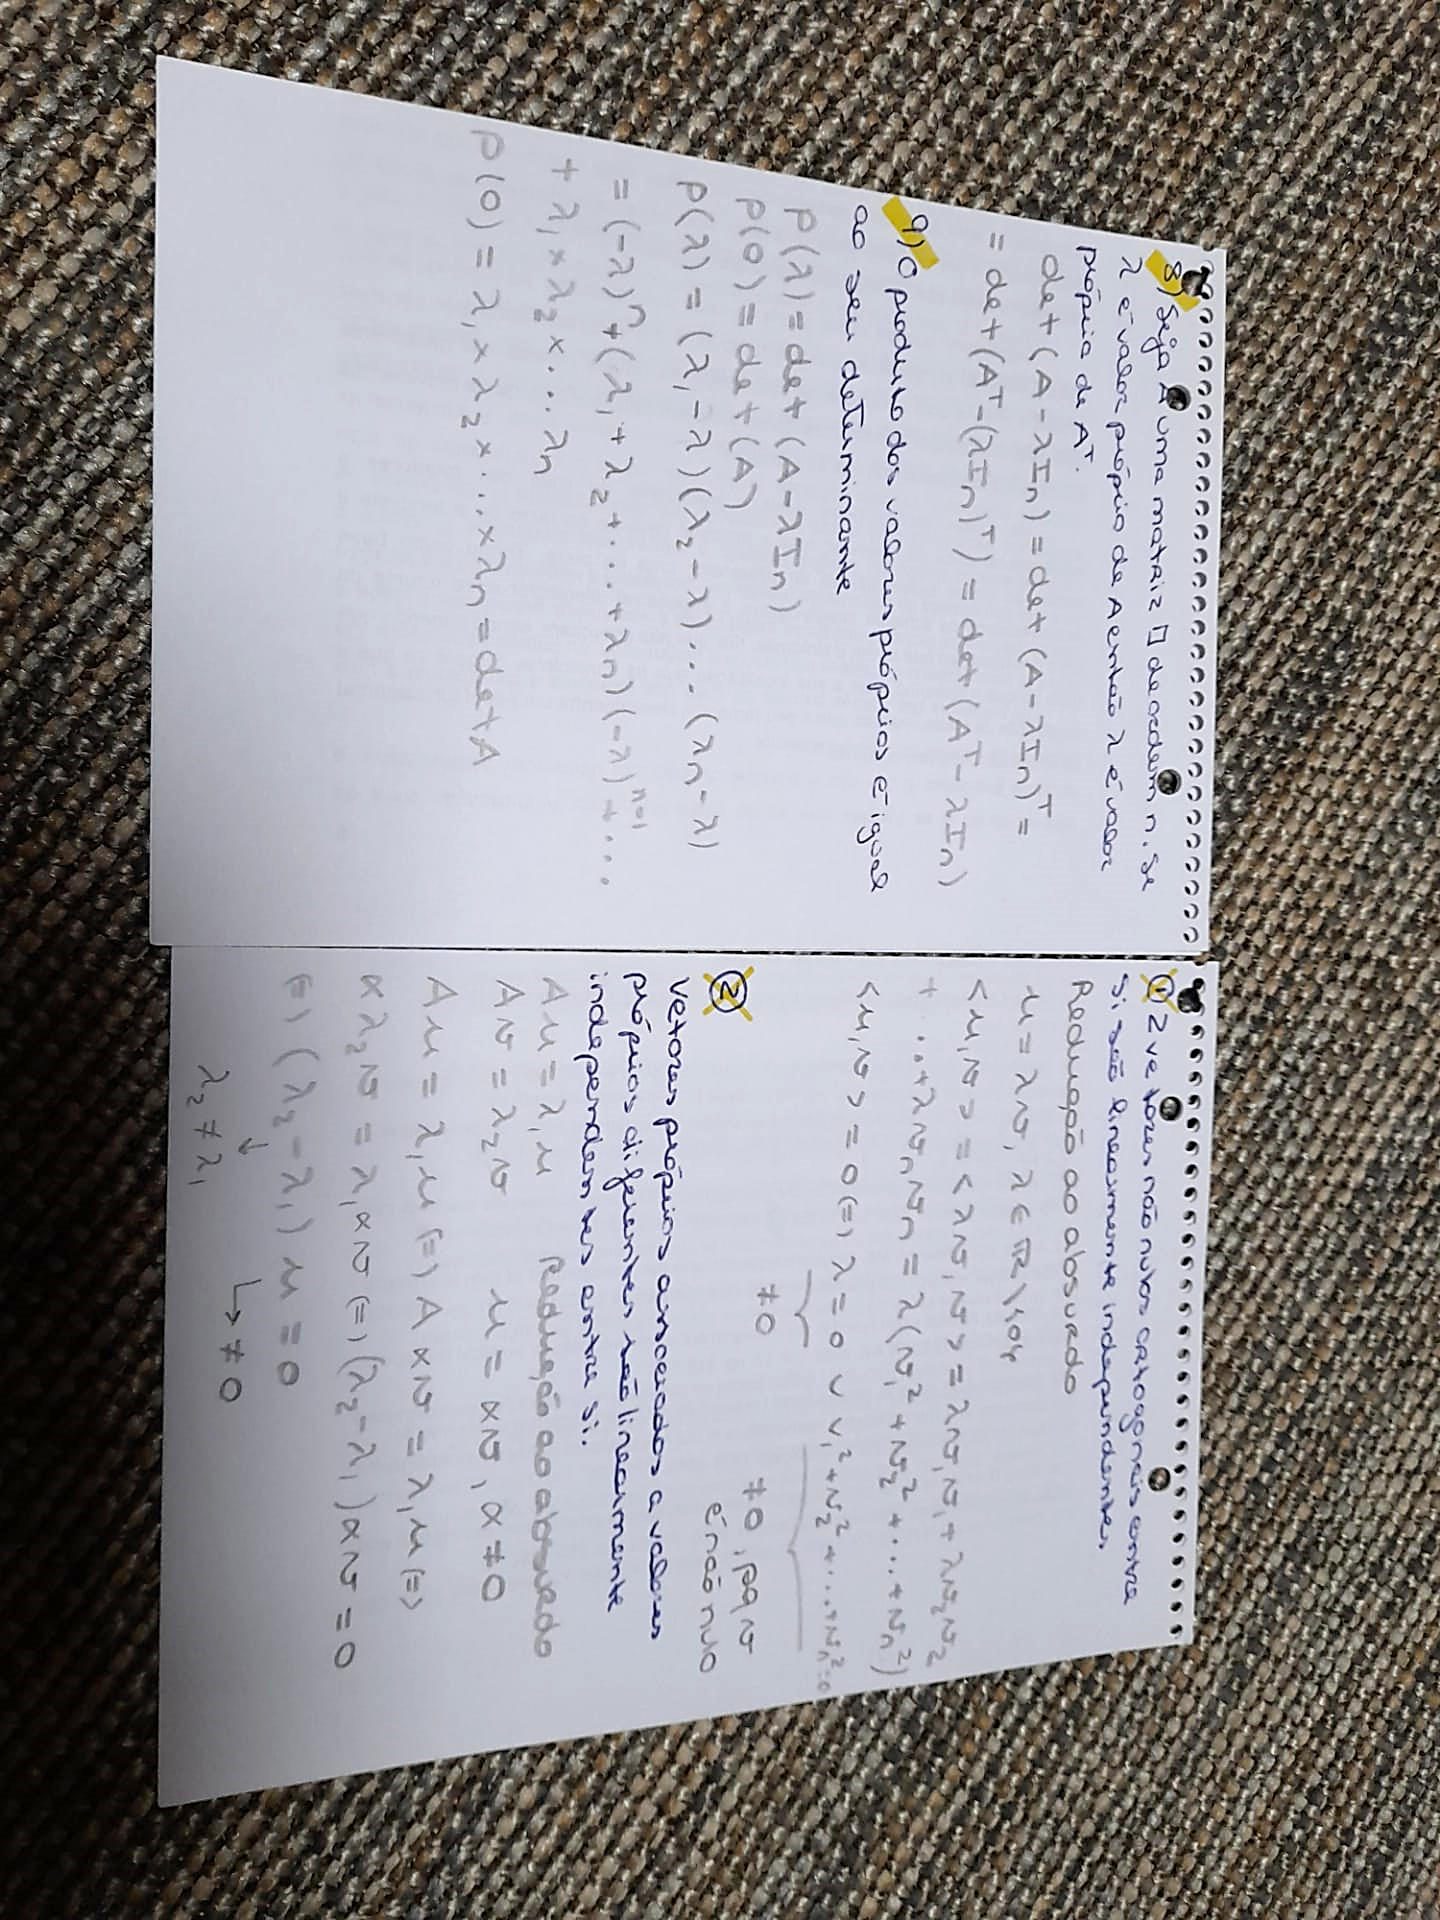 8) Seja A uma matriz □ de ordem n. Se
λ é valor próprio de A então λ é valor
própio de Aᵀ.
det (A - λIn) = det (A - λIn)ᵀ =
= det (Aᵀ - (λIn)ᵀ) = det (Aᵀ - λIn)
9) O produto dos valores próprios é igual
ao seu determinante
P(λ) = det (A - λIn)
P(0) = det (A)
P(λ) = (λ₁ - λ)(λ₂ - λ)... (λn - λ)
= (-λ)ⁿ + (λ₁ + λ₂ + ... + λn)(-λ)ⁿ⁻¹ + ...
+ λ₁ × λ₂ × ... λn
P(0) = λ₁ × λ₂ × ... × λn = det A
① 2 vetores não nulos ortogonais entre
si são linearmente independentes
Redução ao absurdo
u = λv, λ ∈ ℝ\{0}
<u,v> = <λv,v> = λv₁v₁ + λv₂v₂
+ ... + λvnvn = λ(v₁² + v₂² + ... + vn²)
<u,v> = 0 (=) λ = 0 ∨ v₁² + v₂² + ... + vn² = 0
≠0
≠0, pq v
é não nulo
②
Vetores própios associados a valores
própios diferentes são linearmente
independentes entre si.
Au = λ₁u Redução ao absurdo
Av = λ₂v u = αv, α ≠ 0
Au = λ₁u (=) A αv = λ₁u (=)
αλ₂v = λ₁αv (=) (λ₂ - λ₁)αv = 0
(=) (λ₂ - λ₁) u = 0
↓ ↳ ≠0
λ₂ ≠ λ₁